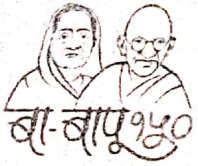 बा-बापू १५०